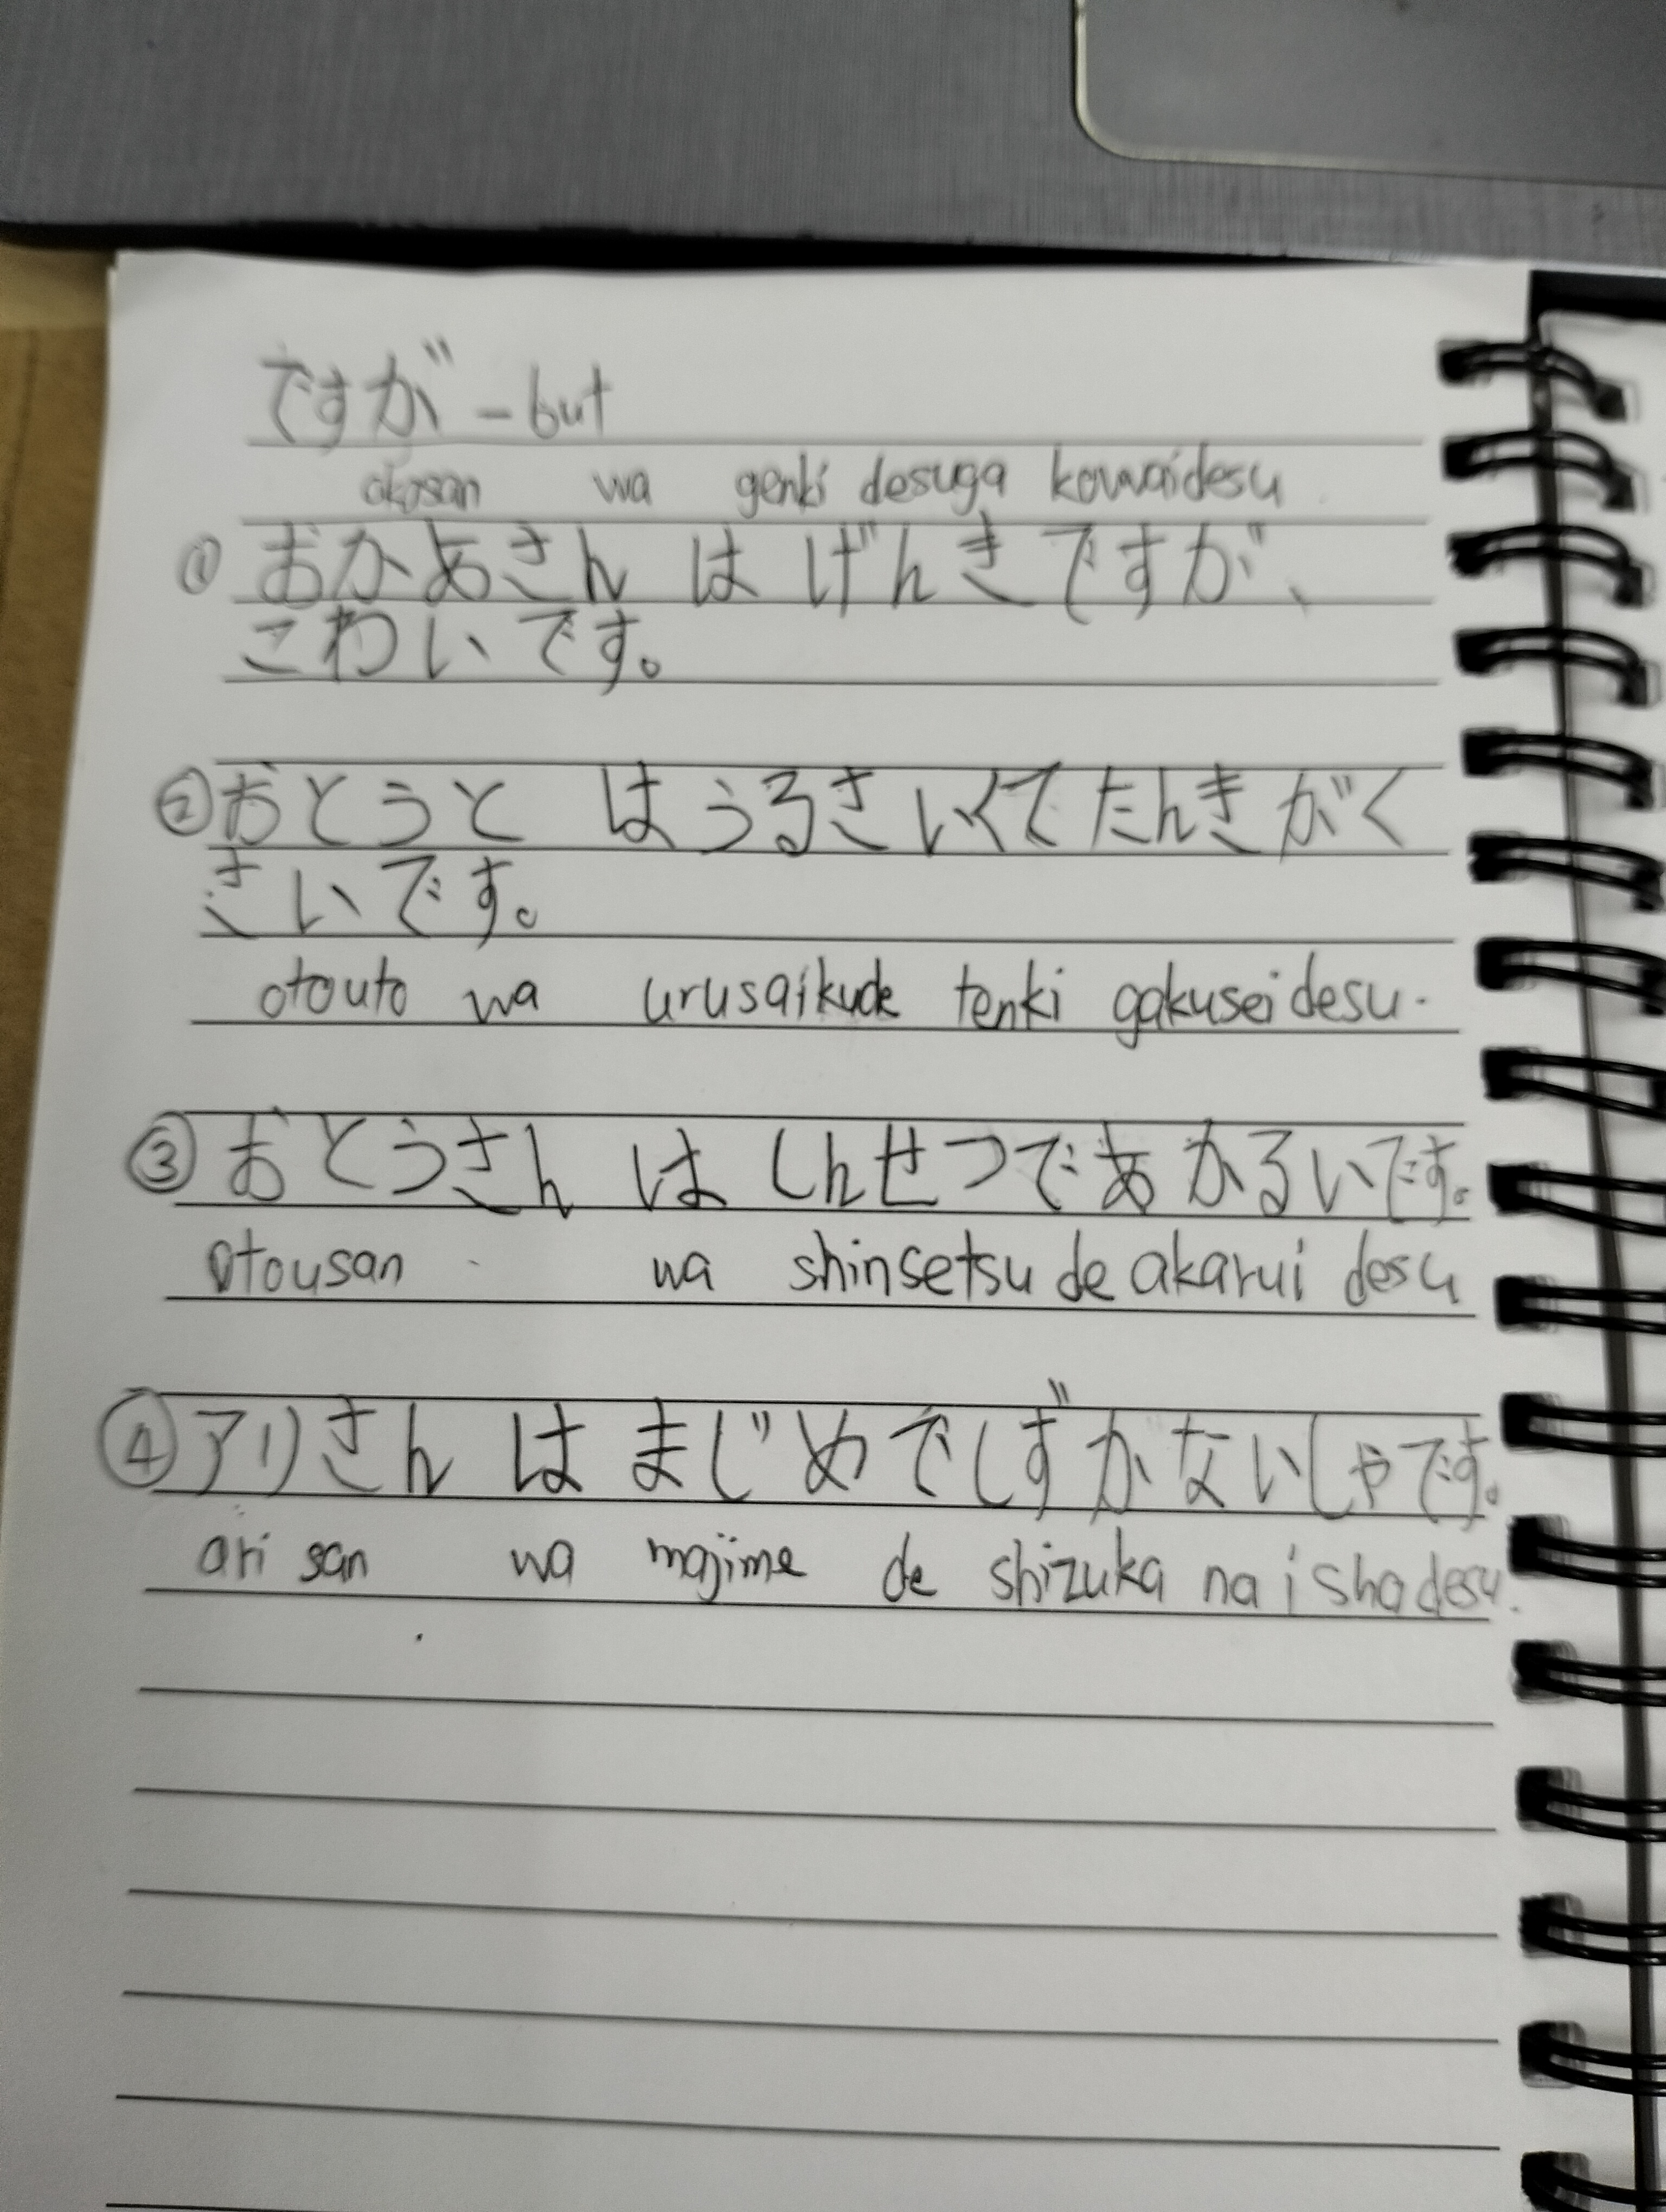 ですが - but
okasan wa genki desuga kowaidesu
① おかあさん は げんきですが、
こわいです。
② おとうと はうるさいくてたんきがく
さいです。
otouto wa urusaikude tenki gakusei desu.
③ おとうさん は しんせつであかるいです。
otousan wa shinsetsu de akarui desu
④ アリさん は まじめでしずかないしゃです。
ari san wa majime de shizuka na isha desu.